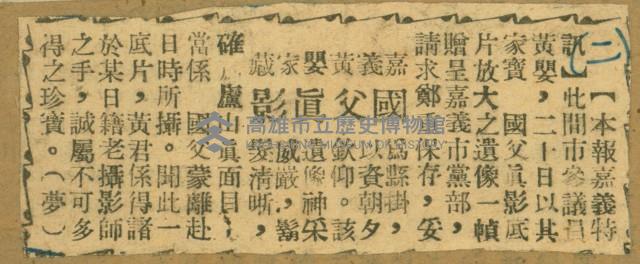 (二)
【本報嘉義特
訊】此間市參議員
黃嬰，二十日以其
家寶　國父眞影底
片放大之遺像一幀
贈呈嘉義市黨部，
請求鄭　保存，妥
嘉義黃嬰家藏
國父眞影
爲縣掛，
以資朝夕
欽仰。該
遺像神采
威嚴，鬚
髮清晰，
確　廬山眞面目
當係　國父蒙難赴
日時所攝。聞此一
底片，黃君係得諸
於某日籍老攝影師
之手，誠屬不可多
得之珍寶。（夢）
高雄市立歷史博物館
KAOHSIUNG MUSEUM OF HISTORY